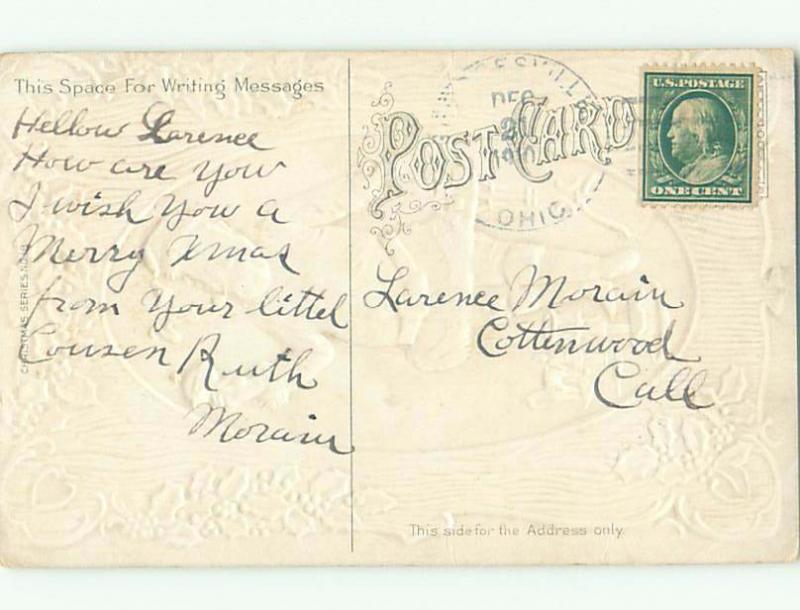 This Space For Writing Messages
Hellow Larence
How are you
I wish you a
Merry Xmas
from your littel
Cousen Ruth
Morain
CHRISTMAS SERIES No.
POST CARD
DEC
OHIO
U.S. POSTAGE
ONE CENT
Larence Morain
Cottenwood
Call
This side for the Address only.